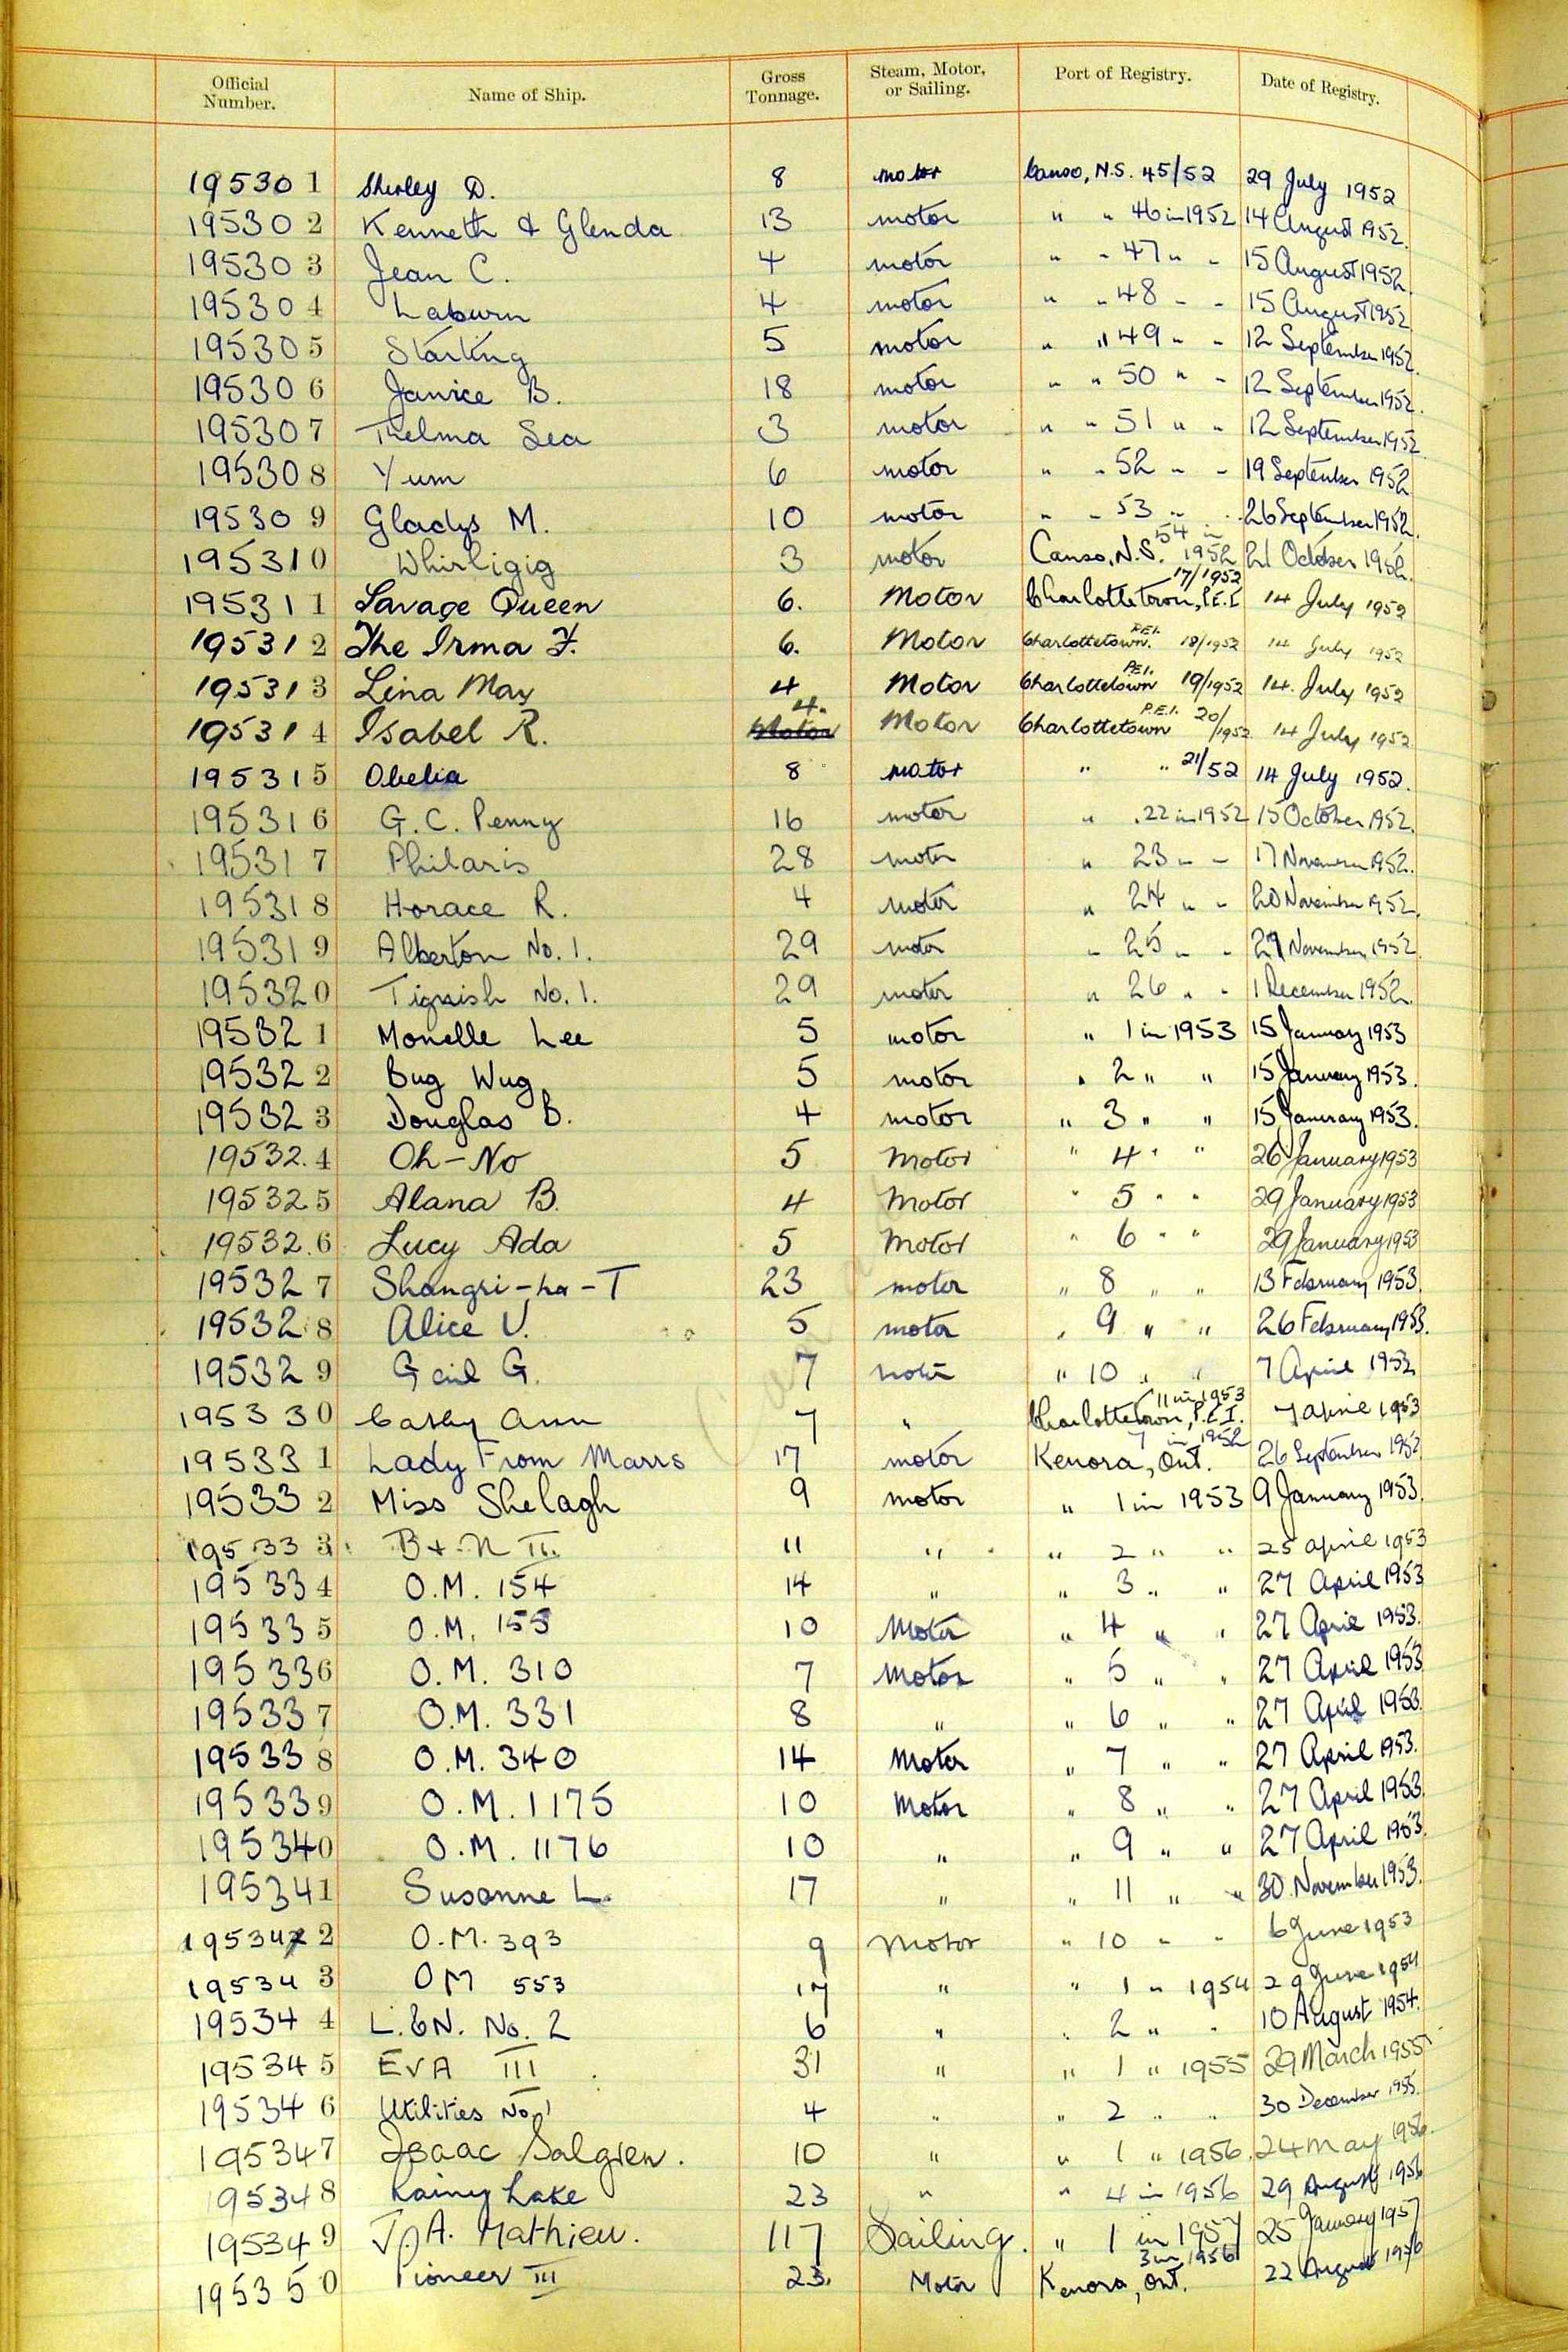 Official Number. Name of Ship. Gross Tonnage. Steam, Motor, or Sailing. Port of Registry. Date of Registry.
195301 Shirley D. 8 motor Canso, N.S. 45/52 29 July 1952
195302 Kenneth & Glenda 13 motor " " 46 in 1952 14 August 1952.
195303 Jean C. 4 motor " " 47 " " 15 August 1952.
195304 Laburn 4 motor " " 48 " " 15 August 1952
195305 Starling 5 motor " " 49 " " 12 September 1952.
195306 Janice B. 18 motor " " 50 " " 12 September 1952.
195307 Thelma Sea 3 motor " " 51 " " 12 September 1952
195308 Yum 6 motor " " 52 " " 19 September 1952
195309 Gladys M. 10 motor " " 53 " " 26 September 1952.
195310 Whirligig 3 motor Canso, N.S. 54 in 1952 21 October 1952.
195311 Savage Queen 6. Motor Charlottetown, P.E.I 17/1952 14 July 1952
195312 The Irma F. 6. Motor Charlottetown. P.E.I. 18/1952 14 July 1952
195313 Lina May 4 Motor Charlottetown P.E.I. 19/1952 14. July 1952
195314 Isabel R. 4. Motor Motor Charlottetown P.E.I. 20/1952 14 July 1952
195315 Obelia 8 motor " " 21/52 14 July 1952.
195316 G.C. Penny 16 motor " . 22 in 1952 15 October 1952.
195317 Philaris 28 motor " 23 " " 17 November 1952.
195318 Horace R. 4 motor " 24 " " 20 November 1952.
195319 Alberton No. 1. 29 motor " 25 " " November 1952
195320 Tignish No. 1. 29 motor " 26 " " 1 December 1952.
195321 Monelle Lee 5 motor " 1 in 1953 15 January 1953
195322 Bug Wug 5 motor " 2 " " 15 January 1953.
195323 Douglas B. 4 motor " 3 " " 15 January 1953.
195324 Oh-No 5 Motor " 4 " " 26 January 1953
195325 Alana B. 4 Motor " 5 " " 29 January 1953
195326 Lucy Ada 5 Motor " 6 " " 29 January 1953
195327 Shangri-La-T 23 motor " 8 " " 13 February 1953.
195328 Alice V. 5 motor " 9 " " 26 February 1953.
195329 Gail G. 7 motor " 10 " " 7 April 1953
195330 Cathy Ann 7 " Charlottetown, P.E.I. 11 in 1953 7 April 1953
195331 Lady From Marrs 17 motor Kenora, Ont. 7 in 1952 26 September 1952
195332 Miss Shelagh 9 motor " 1 in 1953 9 January 1953.
195333 B + N II. 11 " " 2 " " 25 April 1953
195334 O.M. 154 14 " " 3 " " 27 April 1953
195335 O.M. 155 10 Motor " 4 " " 27 April 1953.
195336 O.M. 310 7 Motor " 5 " " 27 April 1953
195337 O.M. 331 8 " " 6 " " 27 April 1953.
195338 O.M. 340 14 Motor " 7 " " 27 April 1953.
195339 O.M. 1175 10 Motor " 8 " " 27 April 1953
195340 O.M. 1176 10 " " 9 " " 27 April 1953.
195341 Susanne L. 17 " " 11 " " 30 November 1953.
195342 O.M. 393 9 Motor " 10 " " 6 June 1953
195343 OM 553 17 " " 1 " 1954 29 June 1954
195344 L.&N. No. 2 6 " " 2 " " 10 August 1954.
195345 EVA III 31 " " 1 " 1955 29 March 1955
195346 Utilities No 1 4 " " 2 " " 30 December 1955.
195347 Isaac Salgren. 10 " " 1 " 1956. 24 May 1956.
195348 Rainy Lake 23 " " 4 in 1956 29 August 1956
195349 J.A. Mathieu. 117 Sailing. " 1 in 1957 25 January 1957
195350 Pioneer III 23. Motor Kenora, Ont. 3 in 1956 22 August 1956